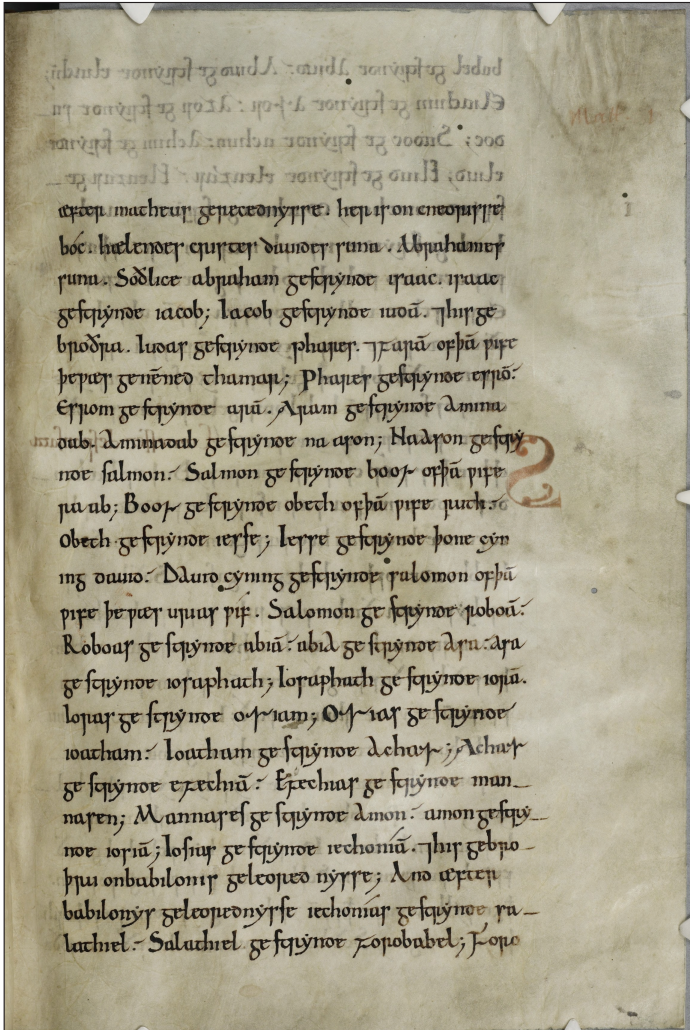 æfter matheus gerecednẏsse. her is on cneorisse
boc. hælendes cristes dauides suna. Abrahames
suna. Soðlice abraham gestrẏnde isaac. isaac
gestrẏnde iacob; Iacob gestrẏnde iudā. ⁊his ge
broðra. Iudas gestrẏnde phares. ⁊zarā ofþā ƿife
þe ƿæs genēned thamar; Phares gestrẏnde esrō.
Esrom gestrẏnde arā. Aram gestrẏnde Amina
dab. Aminadab gestrẏnde naason; Naason gestrẏ
nde salmon. Salmon gestrẏnde booz ofþā ƿife
raab; Booz gestrẏnde obeth ofþā ƿife ruth.
Obeth gestrẏnde iesse; Iesse gestrẏnde þone cẏn
ing dauid. Dauid cẏning gestrẏnde salomon ofþā
ƿife þe ƿæs urias ƿif. Salomon gestrẏnde roboā.
Roboas gestrẏnde abiā. abia gestrẏnde Asa. asa
gestrẏnde iosaphath; Iosaphath gestrẏnde iorā.
Ioras gestrẏnde oziam; Ozias gestrẏnde
ioatham. Ioatham gestrẏnde Achaz; Achaz
gestrẏnde ezechiā. Ezechias gestrẏnde man
nasen; Mannases gestrẏnde Amon. amon gestrẏ
nde iosiā; Iosias gestrẏnde iechoniā. ⁊his gebro
þru onbabilonis geleorednẏsse; And æfter
babilonẏs geleorednẏsse iechonias gestrẏnde sa
lathiel. Salathiel gestrẏnde zorobabel; Zoro